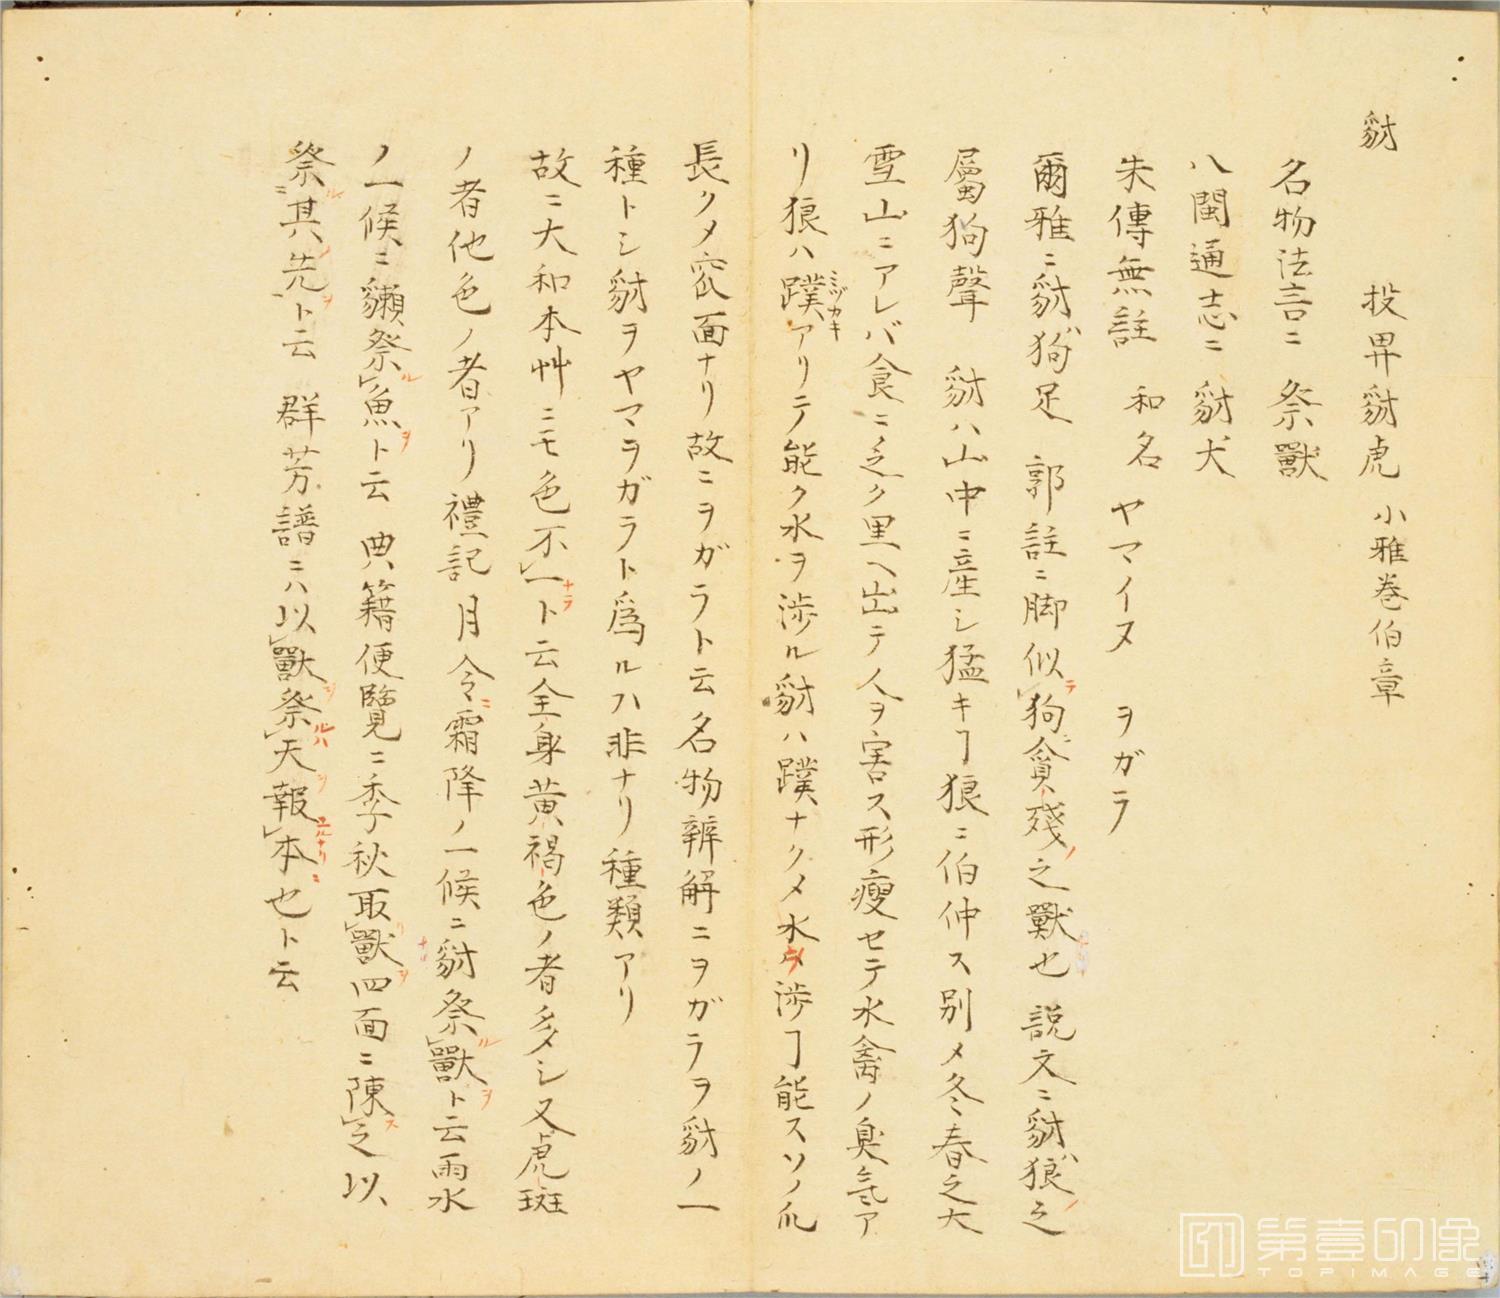 豺　投畀豺虎　小雅巷伯章
名物法言ニ　祭獸
八閩通志ニ　豺犬
朱傳無註　和名　ヤマイヌ　ヲガラ
爾雅ニ豺ハ狗足　郭註ニ脚似テ狗ニ貪殘ノ之獸也　説文ニ豺ハ狼ノ之
屬狗聲　豺ハ山中ニ産シ猛キヿ狼ニ伯仲ス別メ冬春之大
雪山ニアレバ食ニ乏ク里ヘ出テ人ヲ害ス形瘦セテ水禽ノ臭氣ア
リ狼ハ蹼ミヅカキアリテ能ク水ヲ渉ル豺ハ蹼ナクメ水ヲ渉ヿ能スソノ爪
長クメ窄面ナリ故ニヲガラト云名物辨解ニヲガラヲ豺ノ一
種トシ豺ヲヤマヲガラト爲ルハ非ナリ種類アリ
故ニ大和本艸ニモ色不一ナラト云全身黄褐色ノ者多メシ又虎斑
ノ者他色ノ者アリ禮記月令ニ霜降ノ一候ニ豺祭ル獸ヲト云雨水
ノ一候ニ獺祭ル魚ヲト云　典籍便覽ニ季秋取リ獸ヲ四面ニ陳ス之以
祭ル其ノ先ヲト云　群芳譜ニハ以獸ヲ祭ルハ天ヲ報ユルナリ本ニ也ト云
第壹印象
TOPIMAGE